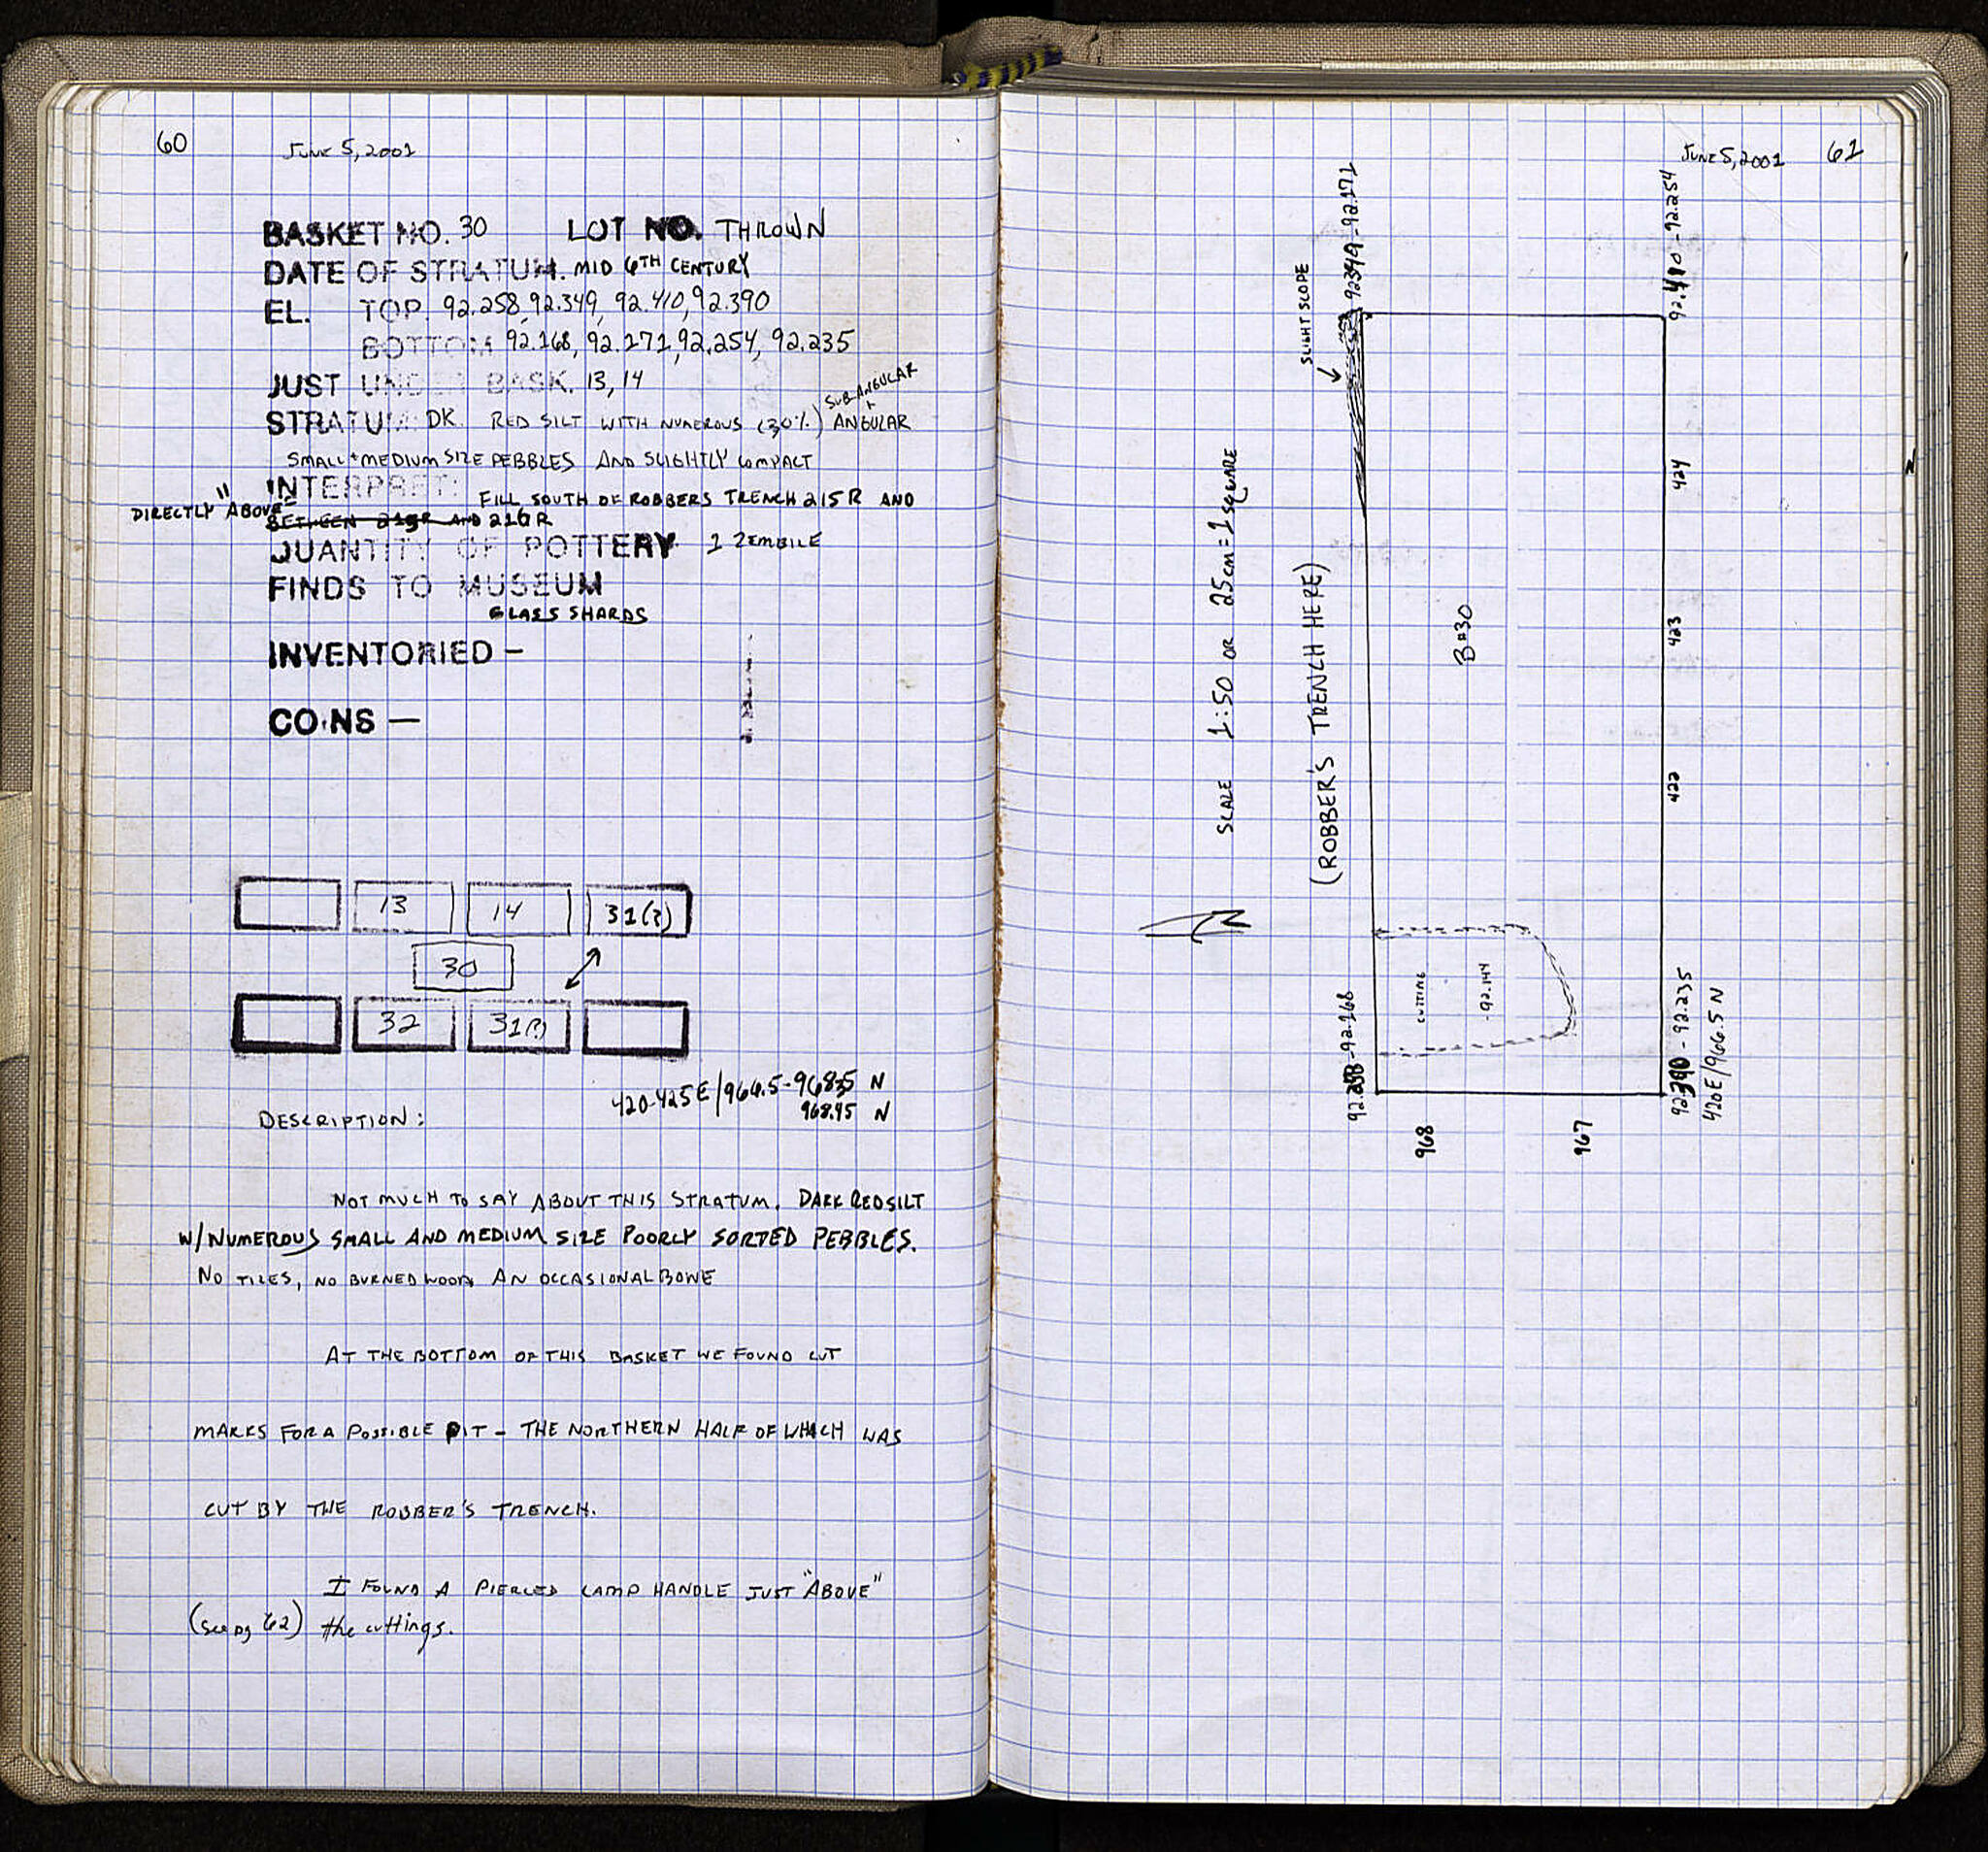 60
JUNE 5, 2001
BASKET NO. 30 LOT NO. THROWN
DATE OF STRATUM. MID 6TH CENTURY
EL. TOP. 92.258, 92.349, 92.410, 92.390
BOTTOM 92.168, 92.171, 92.254, 92.235
JUST UNDER BASK. 13, 14
SUBANGULAR
+
STRATUM: DK. RED SILT WITH NUMEROUS (30%) ANGULAR
SMALL + MEDIUM SIZE PEBBLES AND SLIGHTLY COMPACT
INTERPRET: FILL SOUTH OF ROBBERS TRENCH 215R AND
DIRECTLY "ABOVE"
BETWEEN 215R AND 216R
QUANTITY OF POTTERY 1 ZEMBILE
FINDS TO MUSEUM
GLASS SHARDS
INVENTORIED -
COINS -
13 14 31(?)
30
32 31(?)
420-425E/966.5-968.35 N
968.95 N
DESCRIPTION:
NOT MUCH TO SAY ABOUT THIS STRATUM. DARK RED SILT
W/NUMEROUS SMALL AND MEDIUM SIZE POORLY SORTED PEBBLES.
NO TILES, NO BURNED WOOD, AN OCCASIONAL BONE
AT THE BOTTOM OF THIS BASKET WE FOUND CUT
MARKS FOR A POSSIBLE PIT - THE NORTHERN HALF OF WHICH WAS
CUT BY THE ROBBER'S TRENCH.
I FOUND A PIERCED LAMP HANDLE JUST "ABOVE"
(see pg 62) the cuttings.
JUNE 5, 2001 61
SCALE 1:50 OR 25cm = 1 square
SLIGHT SLOPE
(ROBBER'S TRENCH HERE)
92.349 - 92.171
92.410 - 92.254
B#30
424
423
422
CUTTING
-92.144
92.258 - 92.168
92.390 - 92.235
420E/966.5 N
968
967